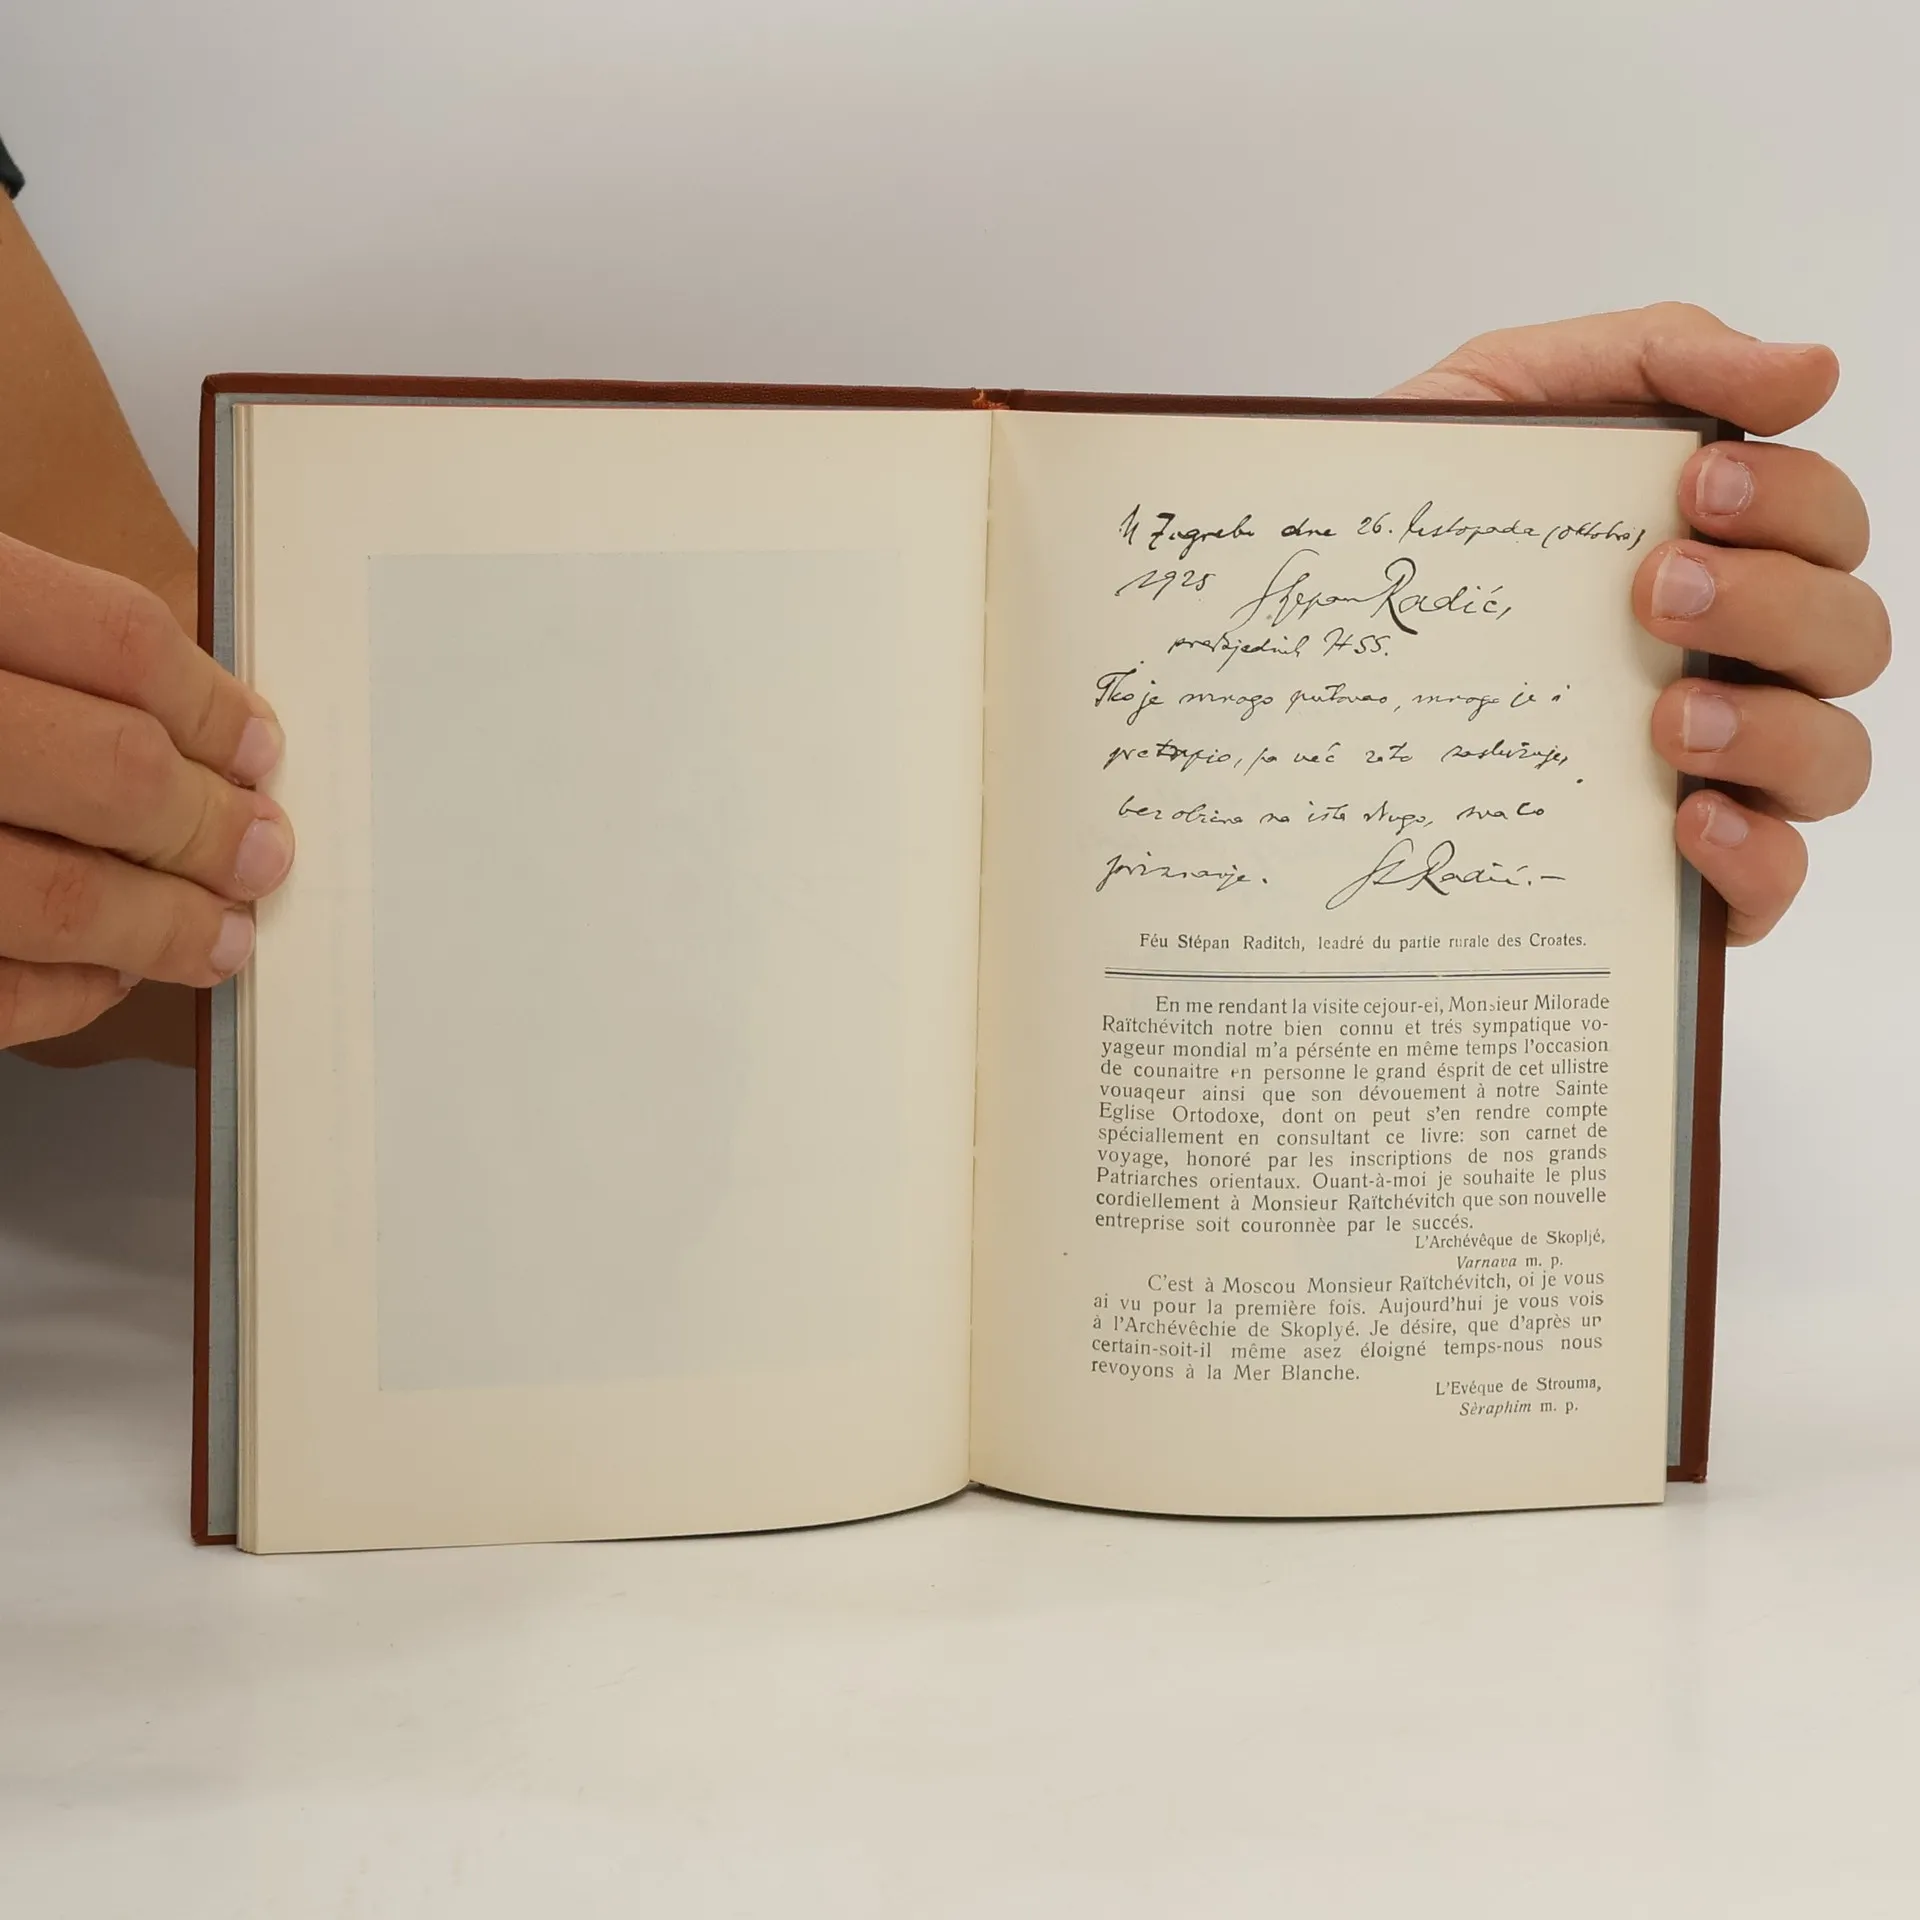 U Zagrebu dne 26. listopada (oktobra)
1925 Stjepan Radić,
predsjednik HSS.
Tko je mnogo putovao, mnogo je i
pretrpio, pa već zato zaslužuje,
bez obzira na išta drugo, svako
priznanje. St Radić.–
Féu Stépan Raditch, leadré du partie rurale des Croates.
En me rendant la visite cejour-ei, Monsieur Milorade
Raïtchévitch notre bien connu et trés sympatique vo-
yageur mondial m'a pérsénte en même temps l'occasion
de counaitre en personne le grand ésprit de cet ullistre
vouaqeur ainsi que son dévouement à notre Sainte
Eglise Ortodoxe, dont on peut s'en rendre compte
spéciallement en consultant ce livre: son carnet de
voyage, honoré par les inscriptions de nos grands
Patriarches orientaux. Ouant-à-moi je souhaite le plus
cordiellement à Monsieur Raïtchévitch que son nouvelle
entreprise soit couronnèe par le succés.
L'Archévêque de Skopljé,
Varnava m. p.
C'est à Moscou Monsieur Raïtchévitch, oi je vous
ai vu pour la première fois. Aujourd'hui je vous vois
à l'Archévêchie de Skoplyé. Je désire, que d'après un
certain-soit-il même asez éloigné temps-nous nous
revoyons à la Mer Blanche.
L'Evéque de Strouma,
Sèraphim m. p.